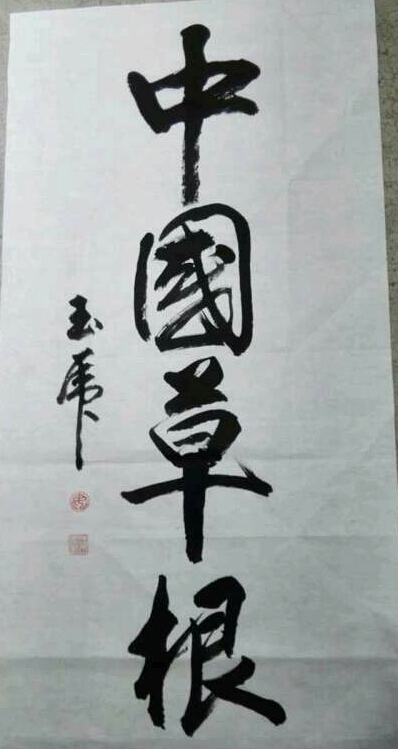 中國草根
玉虎